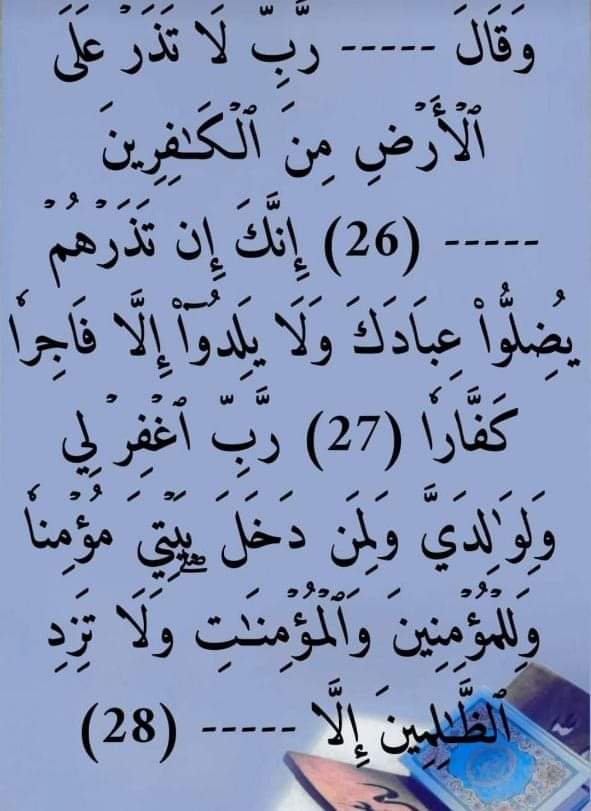 وَقَالَ ----- رَّبِّ لَا تَذَرۡ عَلَى
ٱلۡأَرۡضِ مِنَ ٱلۡكَٰفِرِينَ
----- (26) إِنَّكَ إِن تَذَرۡهُمۡ
يُضِلُّواْ عِبَادَكَ وَلَا يَلِدُوٓاْ إِلَّا فَاجِرٗا
كَفَّارٗا (27) رَّبِّ ٱغۡفِرۡ لِي
وَلِوَٰلِدَيَّ وَلِمَن دَخَلَ بَيۡتِيَ مُؤۡمِنٗا
وَلِلۡمُؤۡمِنِينَ وَٱلۡمُؤۡمِنَٰتِ وَلَا تَزِدِ
ٱلظَّٰلِمِينَ إِلَّا ----- (28)